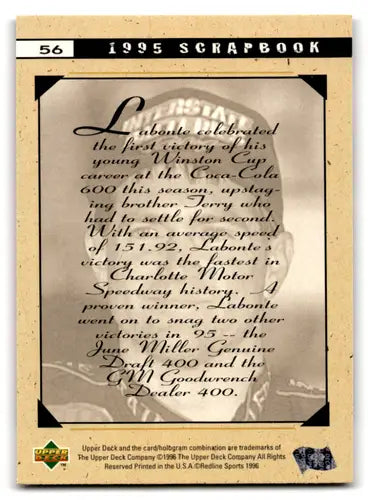 56 1995 SCRAPBOOK
INTERSTATE
Labonte celebrated
the first victory of his
young Winston Cup
career at the Coca-Cola
600 this season, upstag-
ing brother Terry who
had to settle for second.
With an average speed
of 151.92, Labonte's
victory was the fastest in
Charlotte Motor
Speedway history. A
proven winner, Labonte
went on to snag two other
victories in 95 -- the
June Miller Genuine
Draft 400 and the
GM Goodwrench
Dealer 400.
UPPER
DECK
TM
Upper Deck and the card/hologram combination are trademarks of
The Upper Deck Company ©1996 The Upper Deck Company All Rights
Reserved Printed in the U.S.A. ©Redline Sports 1996